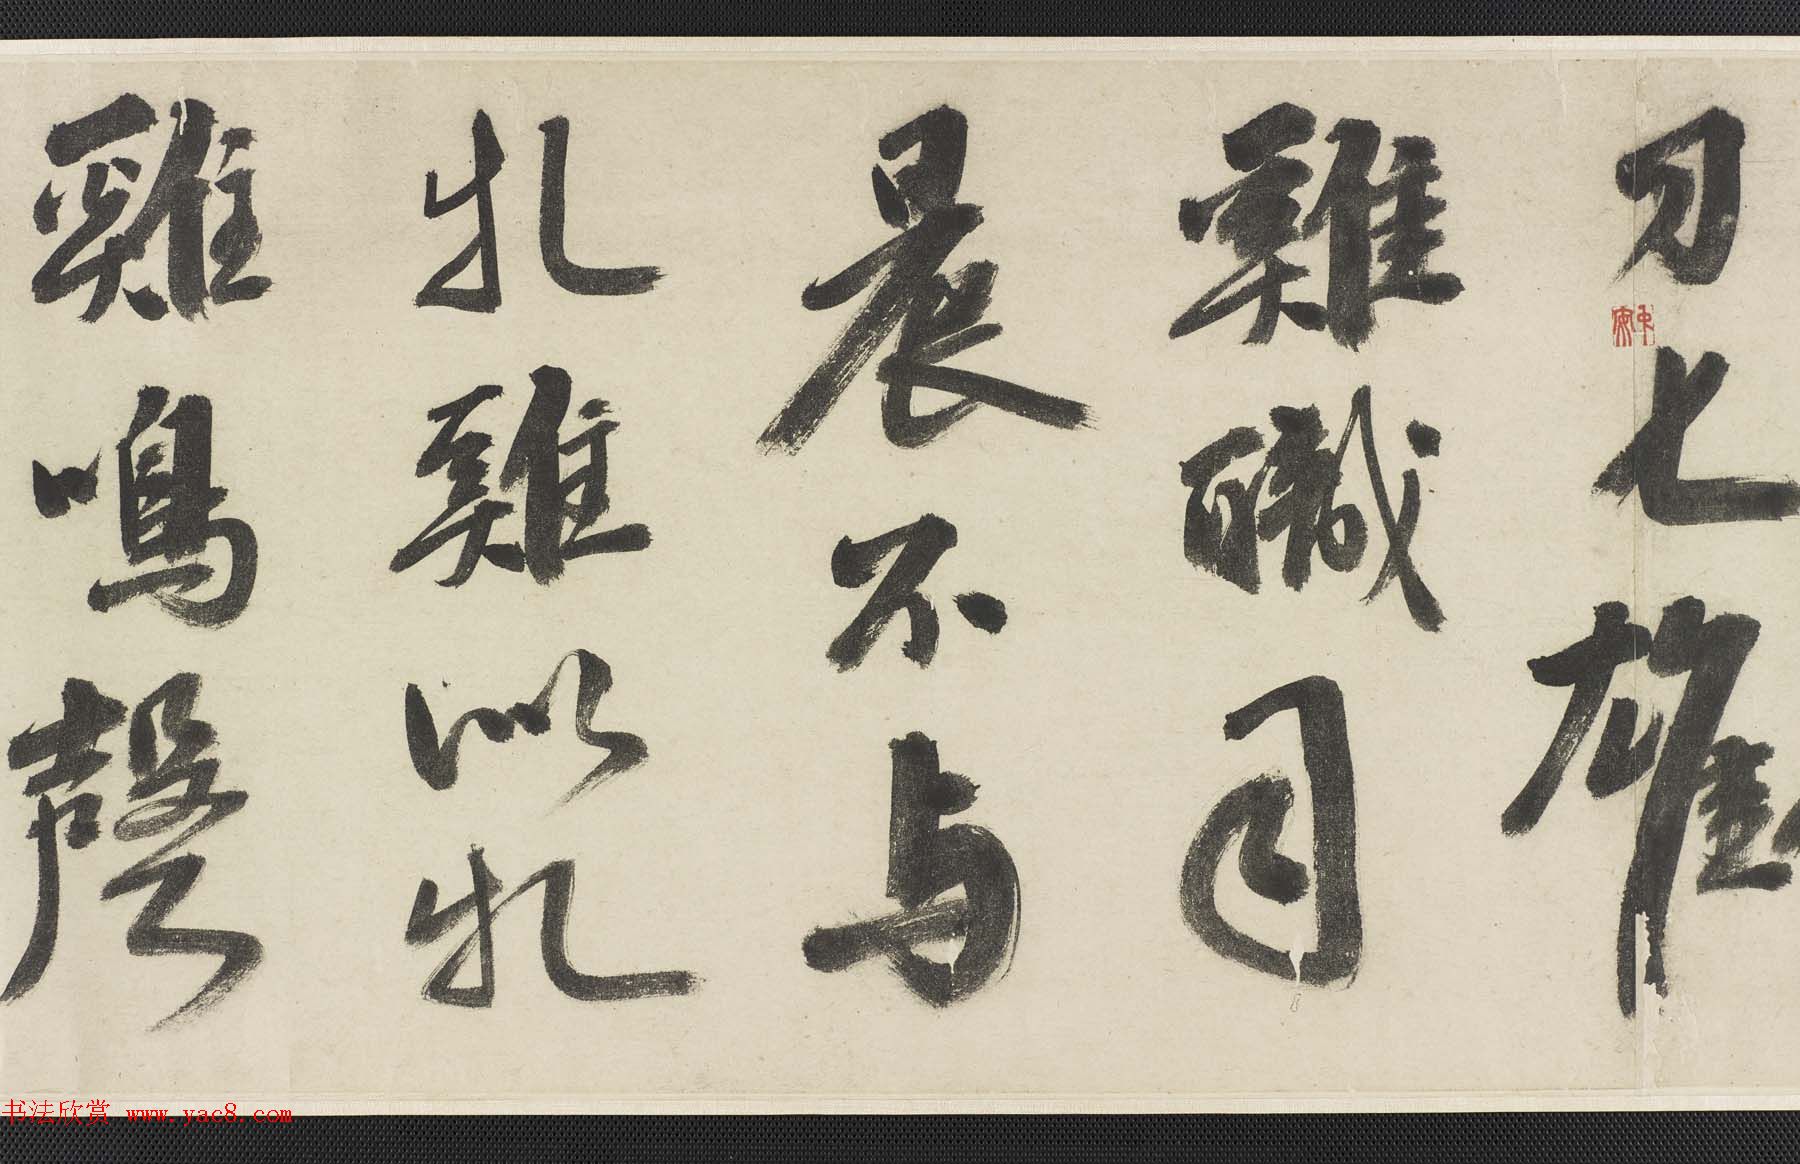 刀匕雄
雞職司
晨不与
牝雞以牝
雞鳴聲
书法欣赏 www.yac8.com